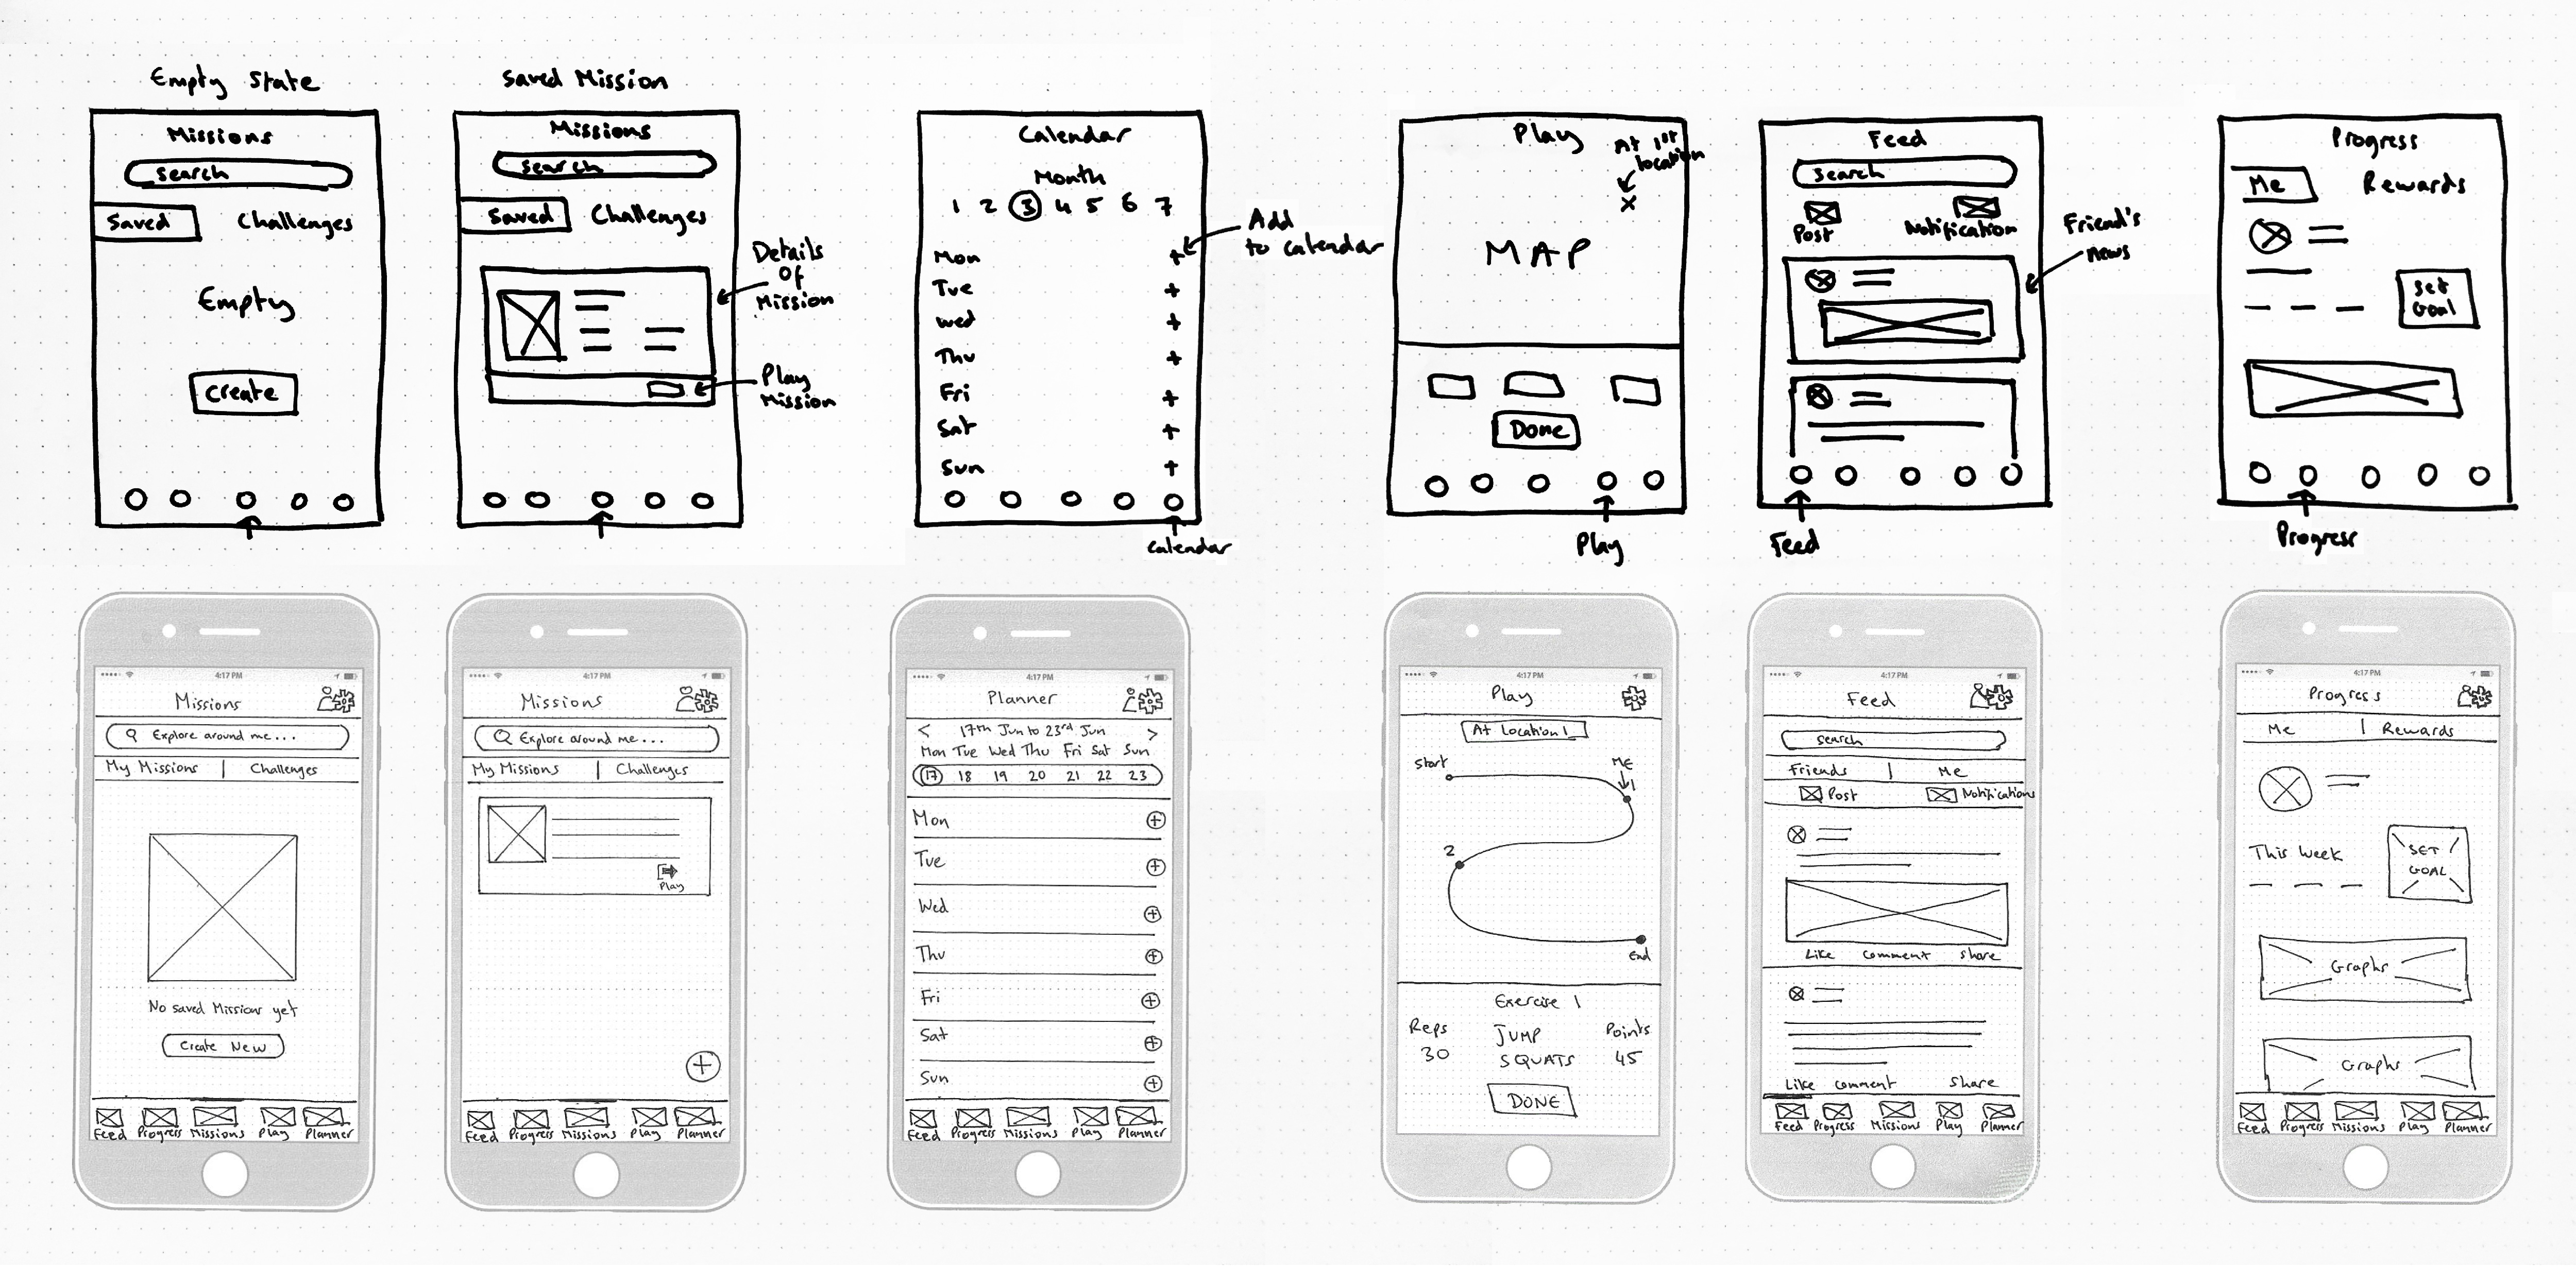 Empty State
Missions
search
Saved Challenges
Empty
Create
Saved Mission
Missions
search
Saved Challenges
Details
Of
Mission
Play
Mission
Calendar
Month
1 2 3 4 5 6 7
Add
to calendar
Mon +
Tue +
Wed +
Thu +
Fri +
Sat +
Sun +
Calendar
Play
At 1st
location
x
MAP
Done
Play
Feed
search
Post Notification
Friend's
news
Feed
Progress
Me Rewards
Set
Goal
Progress
4:17 PM
Missions
Explore around me...
My Missions | Challenges
No saved Missions yet
Create New
Feed Progress Missions Play Planner
4:17 PM
Missions
Explore around me...
My Missions | Challenges
Play
+
Feed Progress Missions Play Planner
4:17 PM
Planner
< 17th Jun to 23rd Jun >
Mon Tue Wed Thu Fri Sat Sun
17 18 19 20 21 22 23
Mon +
Tue +
Wed +
Thu +
Fri +
Sat +
Sun +
Feed Progress Missions Play Planner
4:17 PM
Play
At Location 1
Start
ME
1
2
End
Exercise 1
Reps JUMP Points
30 SQUATS 45
DONE
4:17 PM
Feed
search
Friends | Me
Post Notifications
Like comment share
Like comment share
Feed Progress Missions Play Planner
4:17 PM
Progress
Me | Rewards
This Week
SET
GOAL
Graphs
Graphs
Feed Progress Missions Play Planner